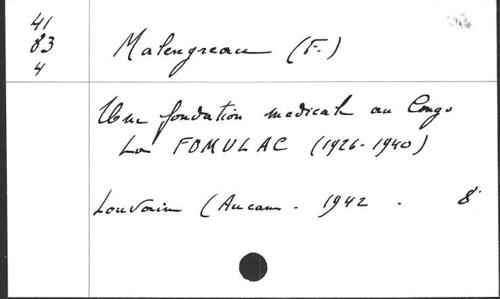 41
83
4
Malengreau (F.)
Une fondation medicale au Congo
La FOMULAC (1926-1940)
Louvain (Aucam. 1942. 8°